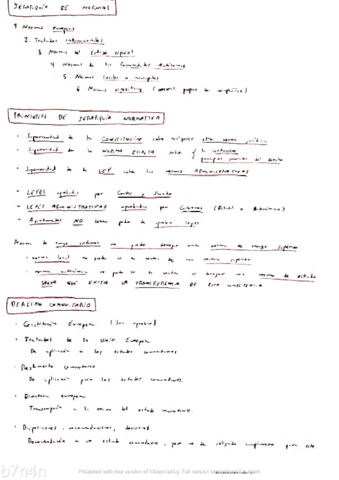 JERARQUÍA DE NORMAS
1 Normas europeas
2. Tratados internacionales
3 Normas del Estado español
4 Normas de las Comunidades Autónomas
5 Normas locales o municipales
6 Normas
PRINCIPIOS DE JERARQUÍA NORMATIVA
- Superioridad de la CONSTITUCIÓN sobre cualquier otra norma jurídica
- Superioridad de la NORMA ESCRITA sobre la costumbre y los principios generales del derecho
- Superioridad de la LEY sobre las normas ADMINISTRATIVAS
- LEYES aprobadas por Cortes y Senado
- LEYES ADMINISTRATIVAS aprobadas por Gobierno (Estatal o Autonómico)
- Ayuntamientos NO tienen poder de aprobar leyes
Norma de rango inferior no puede derogar una norma de rango superior
- norma local no puede ir en contra de una norma superior
- norma autonómica no puede ir en contra ni derogar una norma de estado
SALVO QUE EXISTA LA TRANSFERENCIA DE ESA COMPETENCIA
DERECHO COMUNITARIO
- Constitución Europea
- Tratados de la Unión Europea
De aplicación a los estados comunitarios
- Reglamento comunitario
De aplicación para los estados comunitarios.
- Directiva europea
a la norma del estado comunitario.
- Disposiciones, recomendaciones,
Recomendación a un estado comunitario, pero no de obligado cumplimiento para este
b7n4n